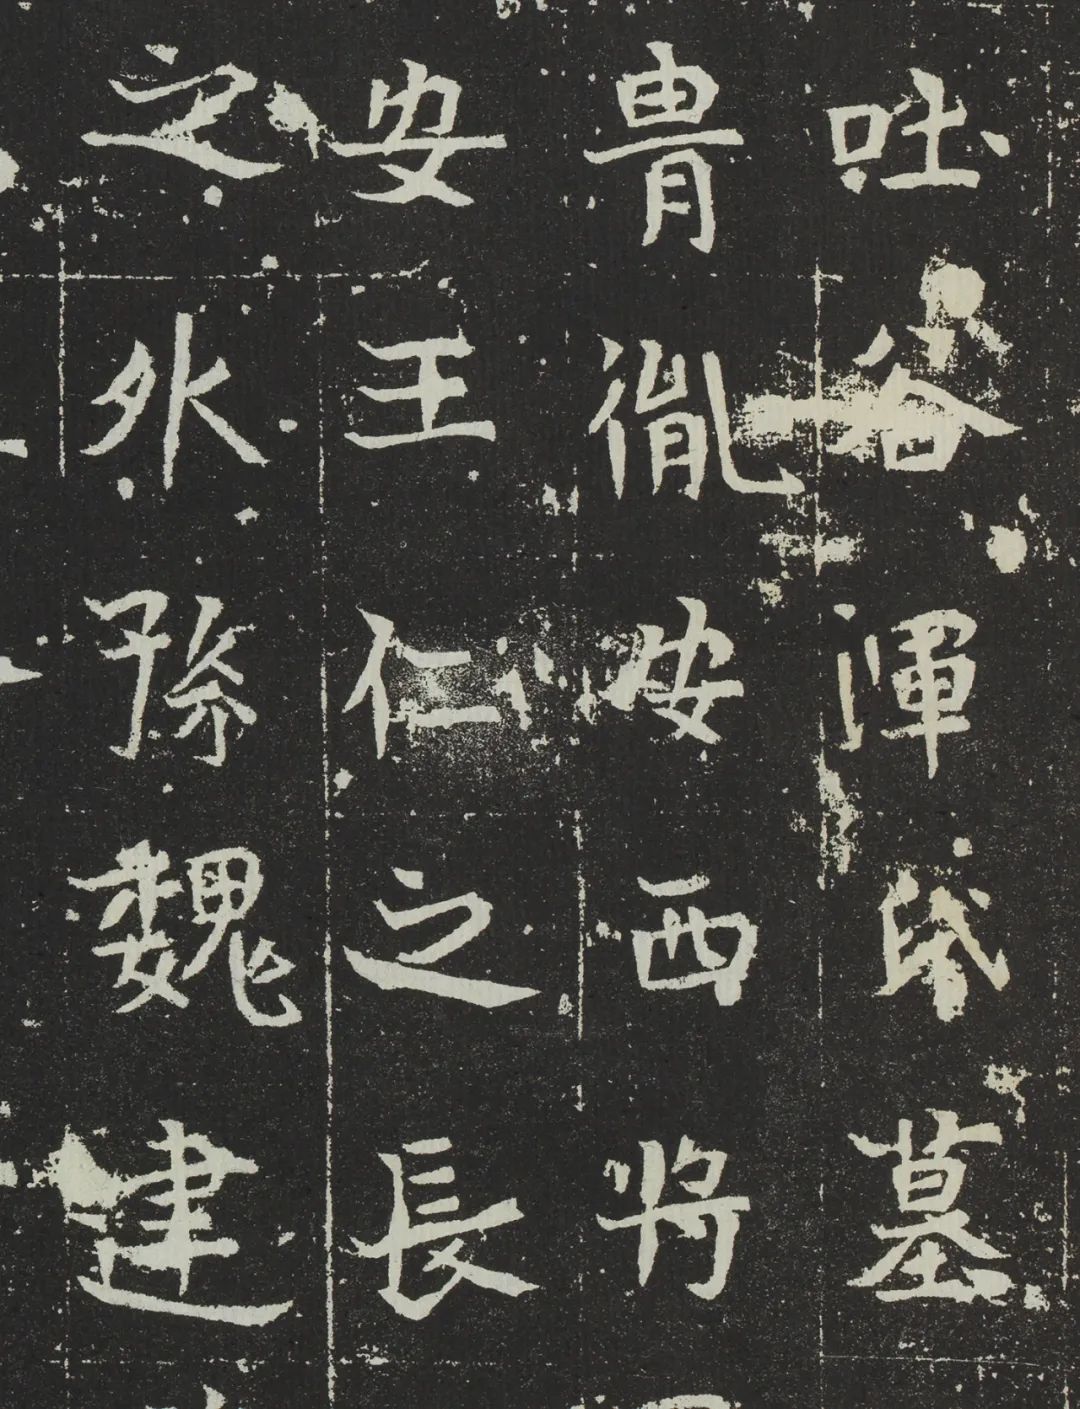 吐谷渾氏墓
胄胤安西將
安王仁之長
之外孫魏建